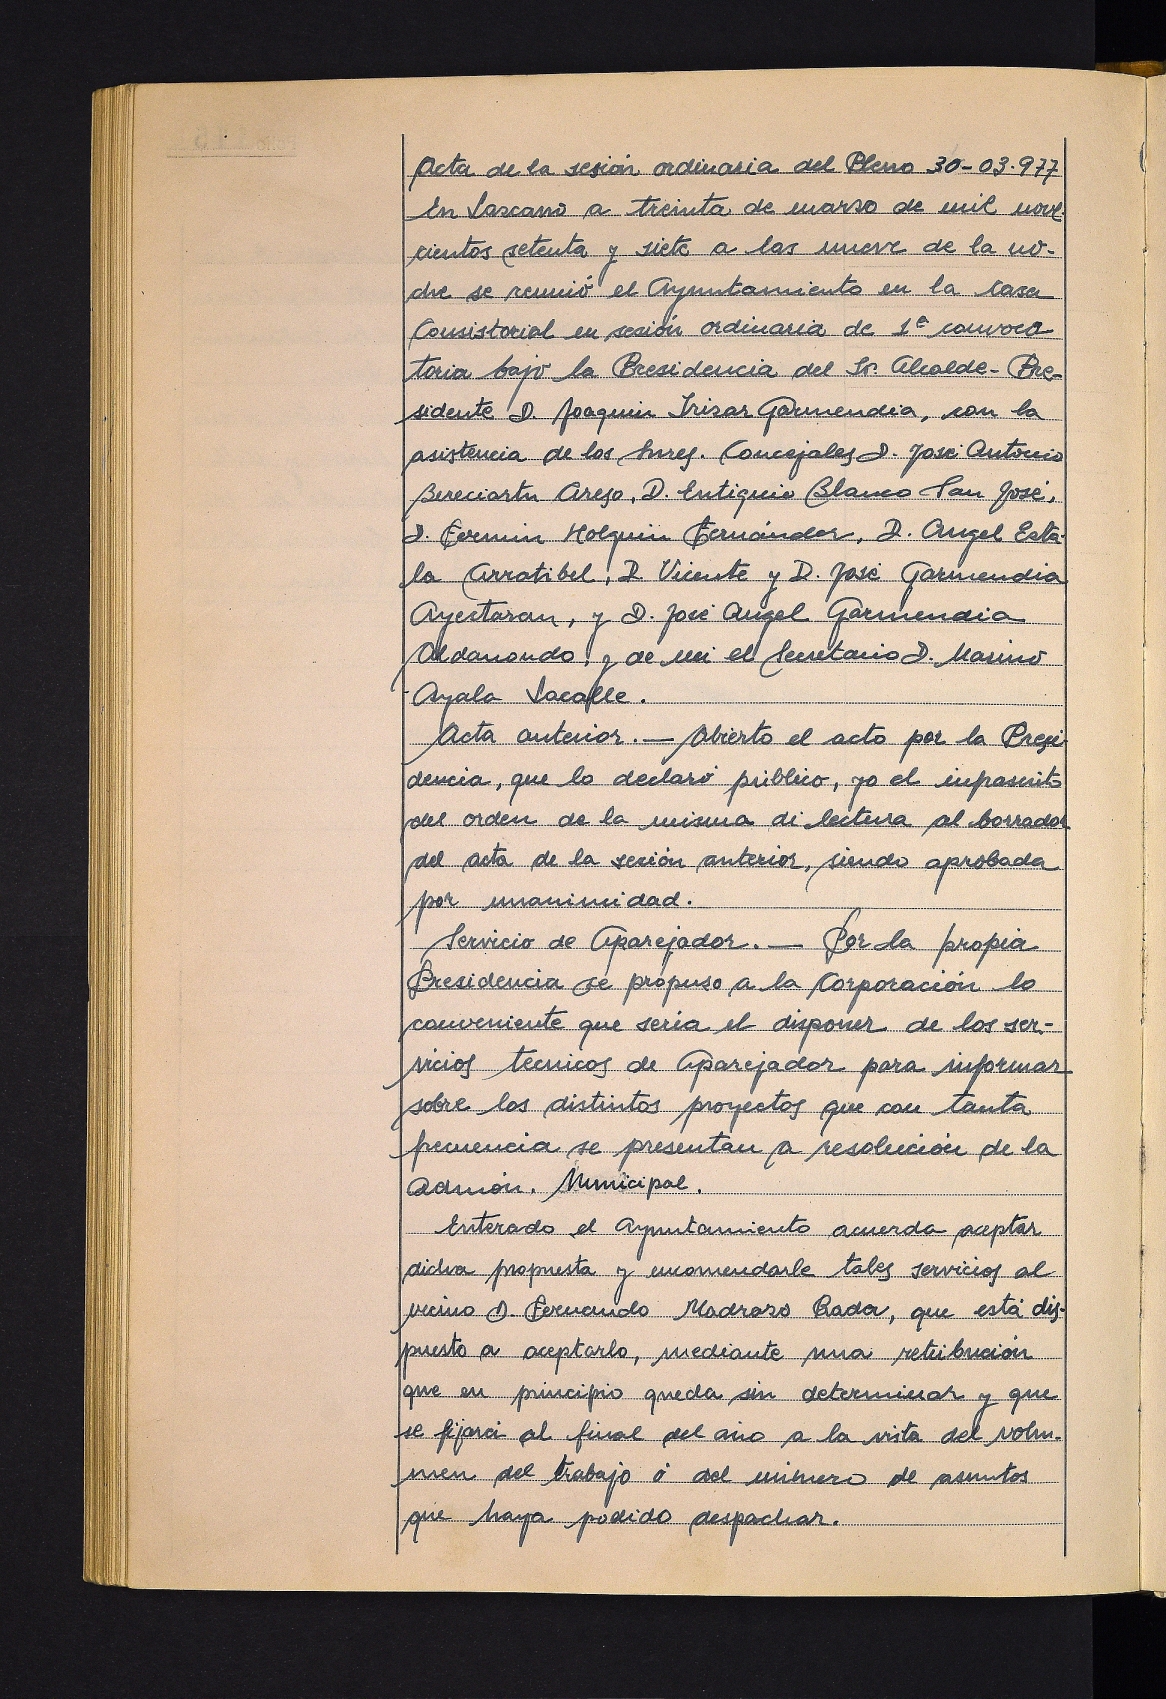 Acta de la sesión ordinaria del Pleno 30-03-977
En Lazcano a treinta de marzo de mil nove-
cientos setenta y siete a las nueve de la no-
che se reunió el Ayuntamiento en la Casa
Consistorial en sesión ordinaria de 1ª convoca
toria bajo la Presidencia del Sr. Alcalde-Pre-
sidente D. Joaquin Irizar Garmendia, con la
asistencia de los Sres. Concejales D. José Antonio
Bereciartu Arezo, D. Eutiquio Blanco San José,
D. Fermin Holguin Fernández, D. Angel Esta-
la Arratibel, D. Vicente y D. José Garmendia
Ayestaran, y D. José Angel Garmendia
Aldanondo, y de mi el Secretario D. Marino
Ayala Lacalle.
Acta anterior.— Abierto el acto por la Presi
dencia, que lo declaró público, yo el infrascrito
del orden de la misma di lectura al borrador
del acta de la sesión anterior, siendo aprobada
por unanimidad.
Servicio de Aparejador.— Por la propia
Presidencia se propuso a la Corporación lo
conveniente que seria el disponer de los ser-
vicios técnicos de Aparejador para informar
sobre los distintos proyectos que con tanta
frecuencia se presentan a resolución de la
Admón. Municipal.
Enterado el Ayuntamiento acuerda aceptar
dicha propuesta y encomendarle tales servicios al
vecino D. Fernando Madrazo Rada, que está dis-
puesto a aceptarlo, mediante una retribución
que en principio queda sin determinar y que
se fijará al final del año a la vista del volu-
men del trabajo ó del número de asuntos
que haya podido despachar.